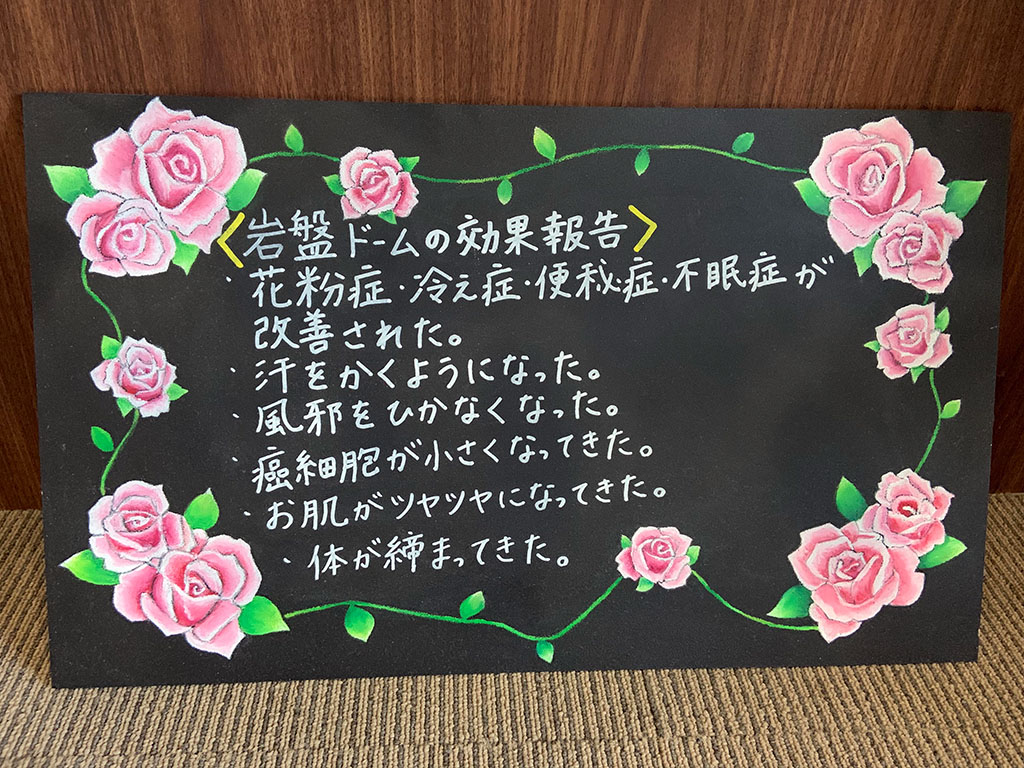 <岩盤ドームの効果報告>
・花粉症・冷え症・便秘症・不眠症が
改善された。
・汗をかくようになった。
・風邪をひかなくなった。
・癌細胞が小さくなってきた。
・お肌がツヤツヤになってきた。
・体が締まってきた。